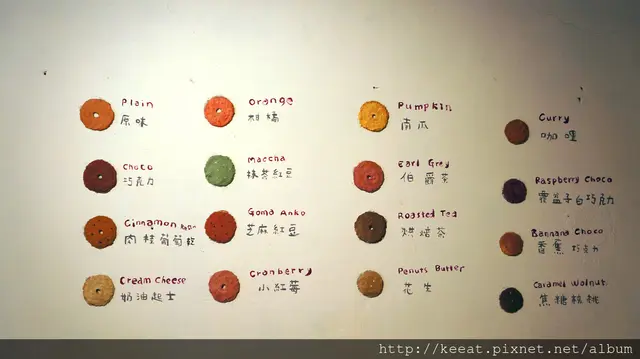 Plain
原味
Choco
巧克力
Cinnamon
肉桂葡萄乾
Cream Cheese
奶油起士
Orange
柑橘
Maccha
抹茶紅豆
Goma Anko
芝麻紅豆
Cranberry
小紅莓
Pumpkin
南瓜
Earl Grey
伯爵茶
Roasted Tea
烘焙茶
Penuts Butter
花生
Curry
咖哩
Raspberry Choco
覆盆子白巧克力
Bannana Choco
香蕉巧克力
Caramel Walnut
焦糖核桃
http://keeat.pixnet.net/album